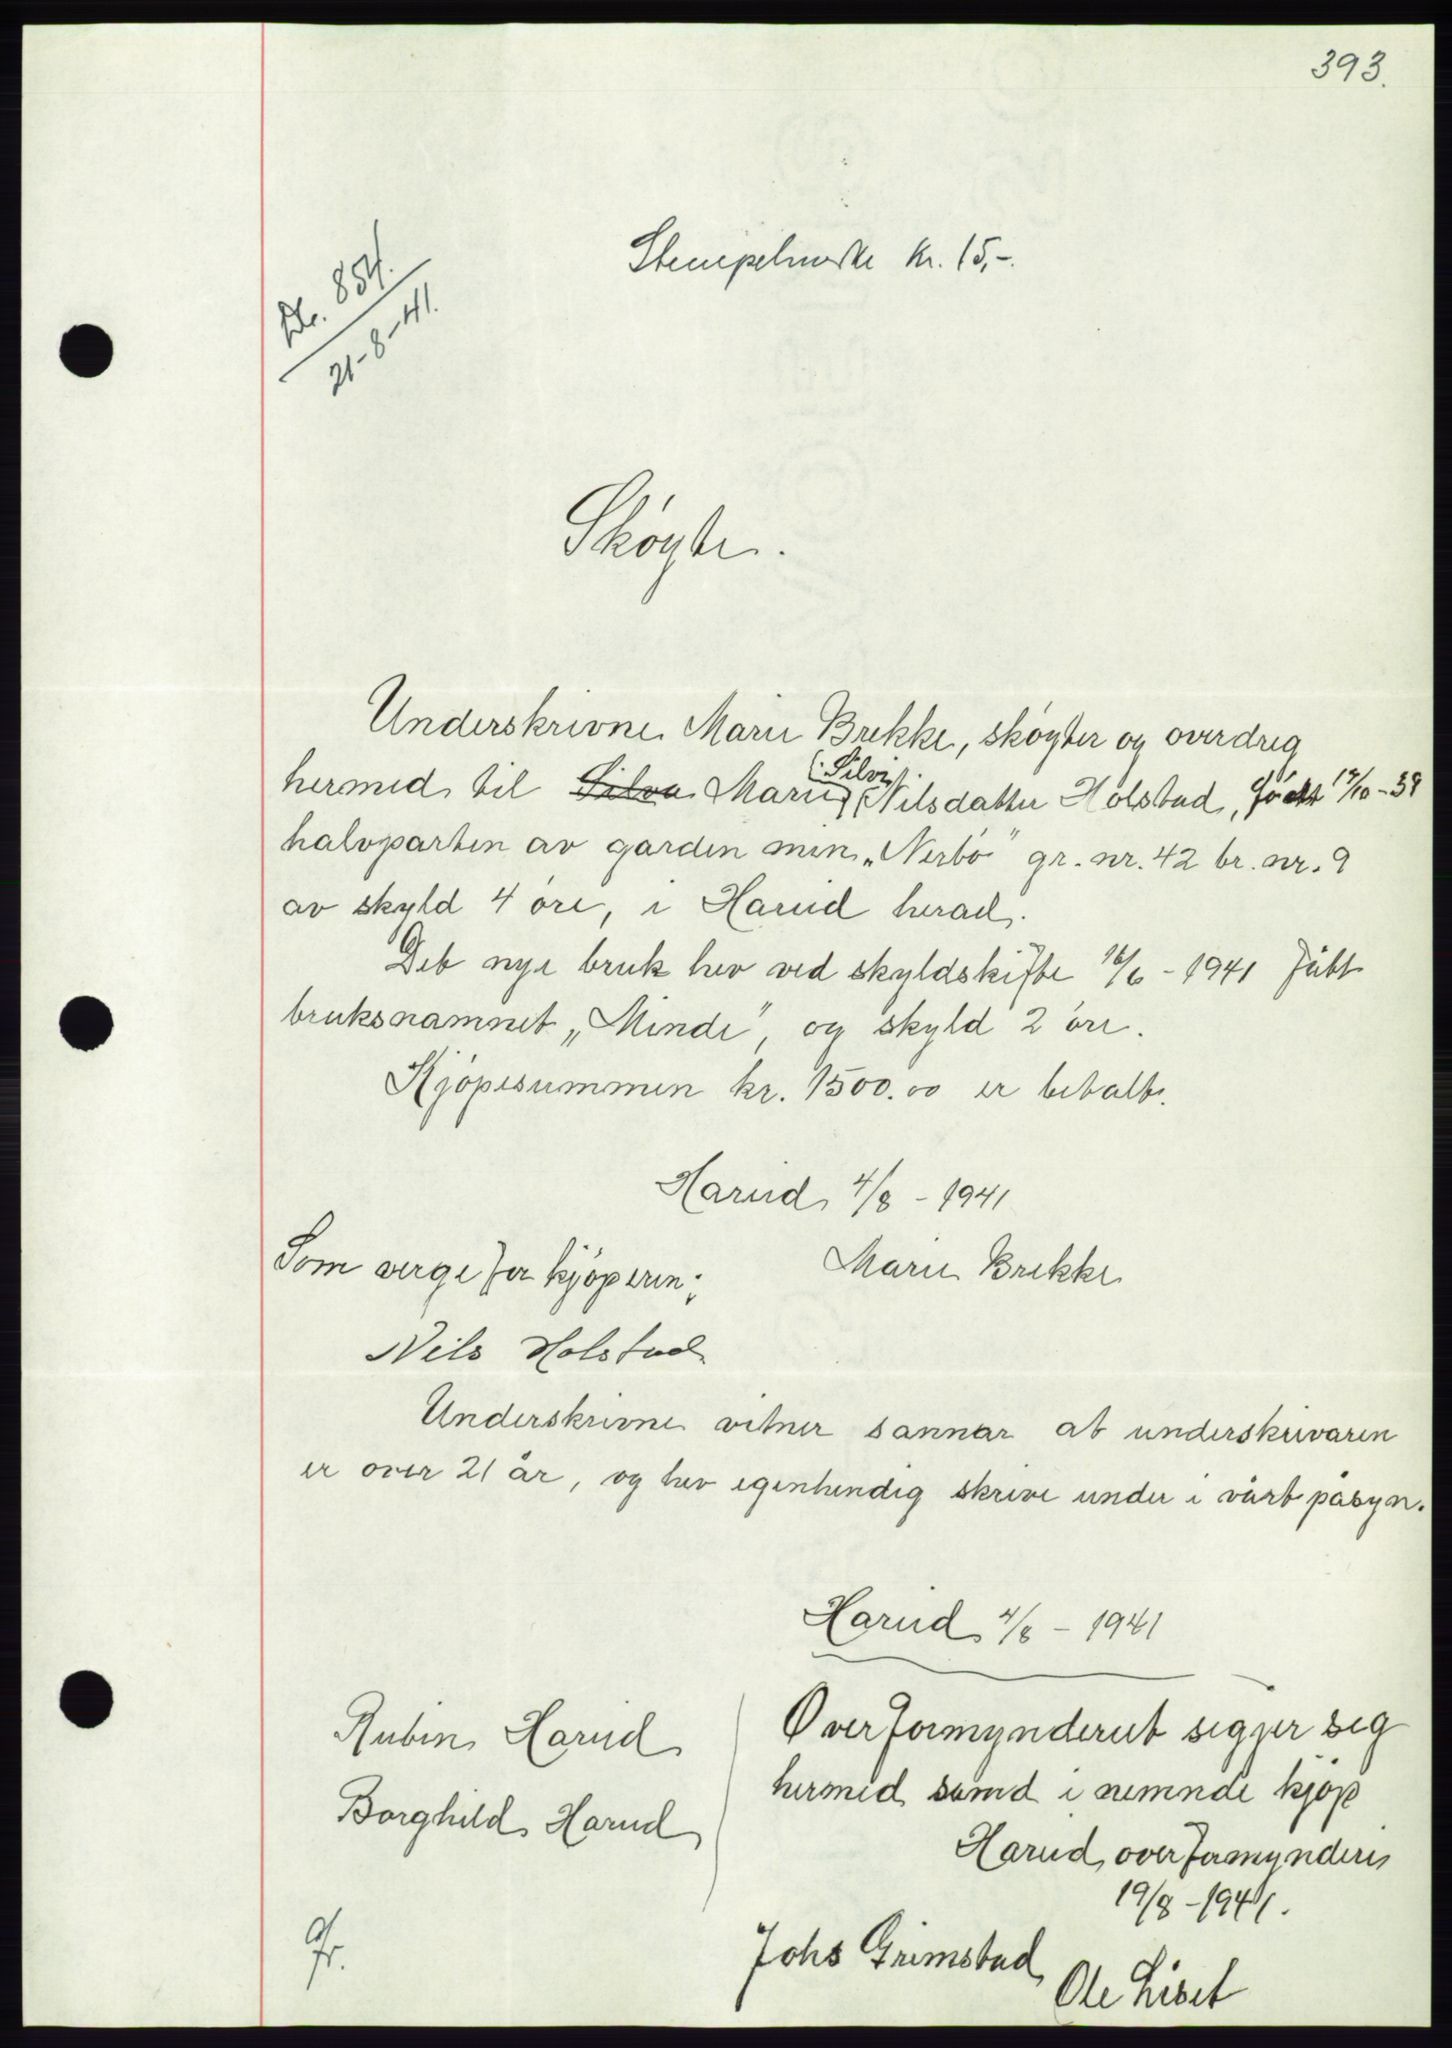 393.
Stempelmerke kr. 15,-.
Nr. 854.
21-8-41.
Skøyte.
Underskrivne Marie Brekke, skøyter og overdreg
(: Silvi :)
hermed til ~~Silva~~ Marie Nilsdatter Holstad, født 14/10-38
halvparten av garden min „Nerbø" gr. nr. 42 br. nr. 9
av skyld 4 øre, i Hareid herad.
Det nye bruk hev ved skyldskifte 16/6 - 1941 fått
bruksnamnet „Minde", og skyld 2 øre.
Kjøpesummen kr. 1500.00 er betalt.
Hareid 4/8 - 1941
Som verge for kjøperen:
Marie Brekke
Nils Holstad
Underskrivne vitner sannar at underskrivaren
er over 21 år, og hev egenhendig skrive under i vårt påsyn.
Hareid 4/8 - 1941
Rubin Hareid
Borghild Hareid
Overformynderiet segjer seg
hermed samd i nemnde kjøp
Hareid overformynderi
19/8 - 1941.
Johs Grimstad
Ole Liset